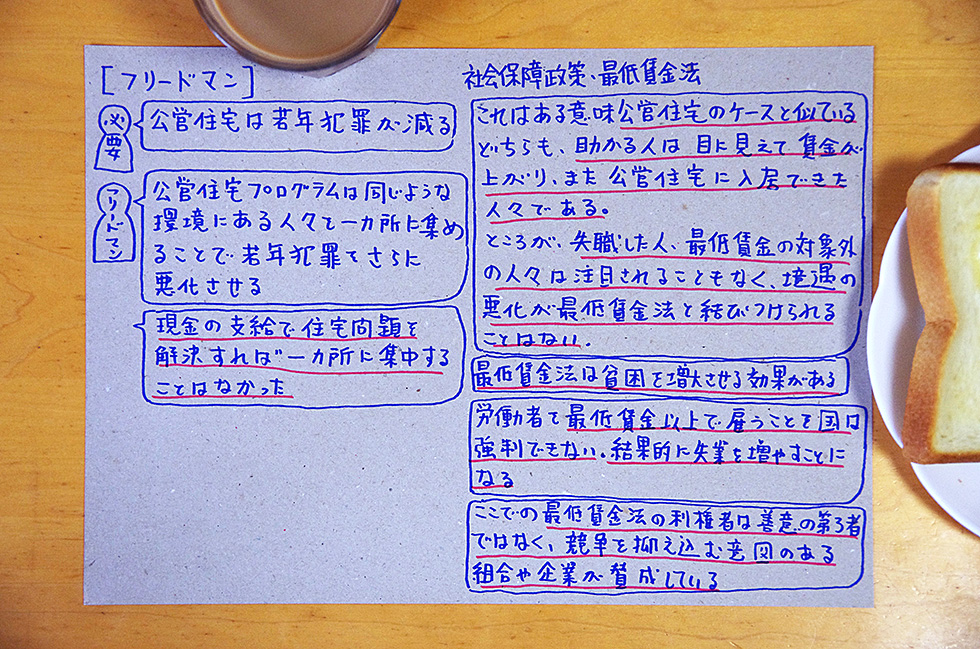 [フリードマン]
必要
公営住宅は若年犯罪が減る
フリードマン
公営住宅プログラムは同じような
環境にある人々を一カ所に集め
ることで若年犯罪をさらに
悪化させる
現金の支給で住宅問題を
解決すれば一カ所に集中する
ことはなかった
社会保障政策、最低賃金法
これはある意味公営住宅のケースと似ている
どちらも、助かる人は目に見えて賃金が
上がり、また公営住宅に入居できた
人々である。
ところが、失職した人、最低賃金の対象外
の人々は注目されることもなく、境遇の
悪化が最低賃金法と結びつけられる
ことはない。
最低賃金法は貧困を増大させる効果がある
労働者を最低賃金以上で雇うことを国は
強制できない。結果的に失業を増やすことに
なる
ここでの最低賃金法の利権者は善意の第3者
ではなく、競争を抑え込む意図のある
組合や企業が賛成している